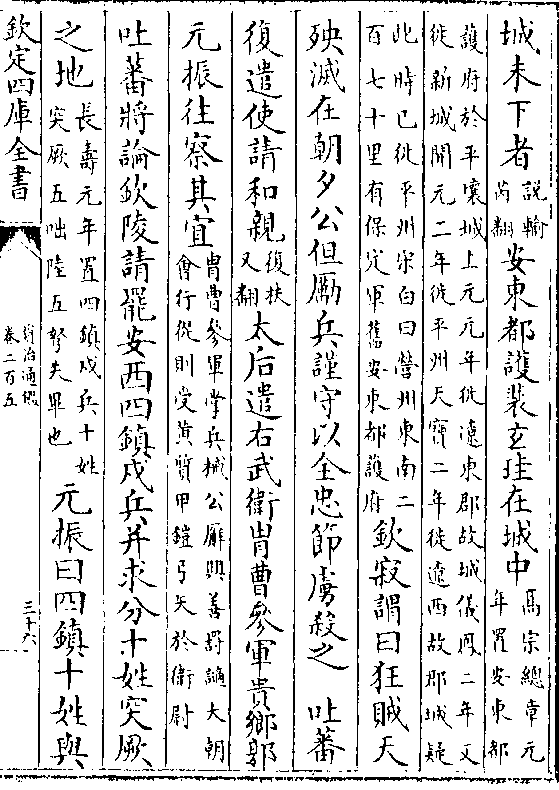 城未下者説輸芮翻安東都護裴玄珪在城中高宗總章元年置安東都
護府於平壤城上元元年徙遼東郡故城儀鳳二年又徙新城開元二年徙平州天寶二年徙遼西故郡城疑
此時已徙平州宋白曰營州東南二百七十里有保定軍舊安東都護府欽寂謂曰狂賊天
殃滅在朝夕公但勵兵謹守以全忠節虜殺之 吐蕃
復遣使請和親復扶又翻太后遣右武衛胄曹參軍貴鄉郭
元振往察其宜胄曹參軍掌兵械公廨興善罰謫大朝會行從則受黄質甲鎧弓矢於衛尉
吐蕃將論欽陵請罷安西四鎮戍兵并求分十姓突厥
之地長夀元年置四鎮戍兵十姓突厥五咄陸五弩失畢也元振曰四鎮十姓與
欽定四庫全書
資治通鑑
卷二百五
三十六